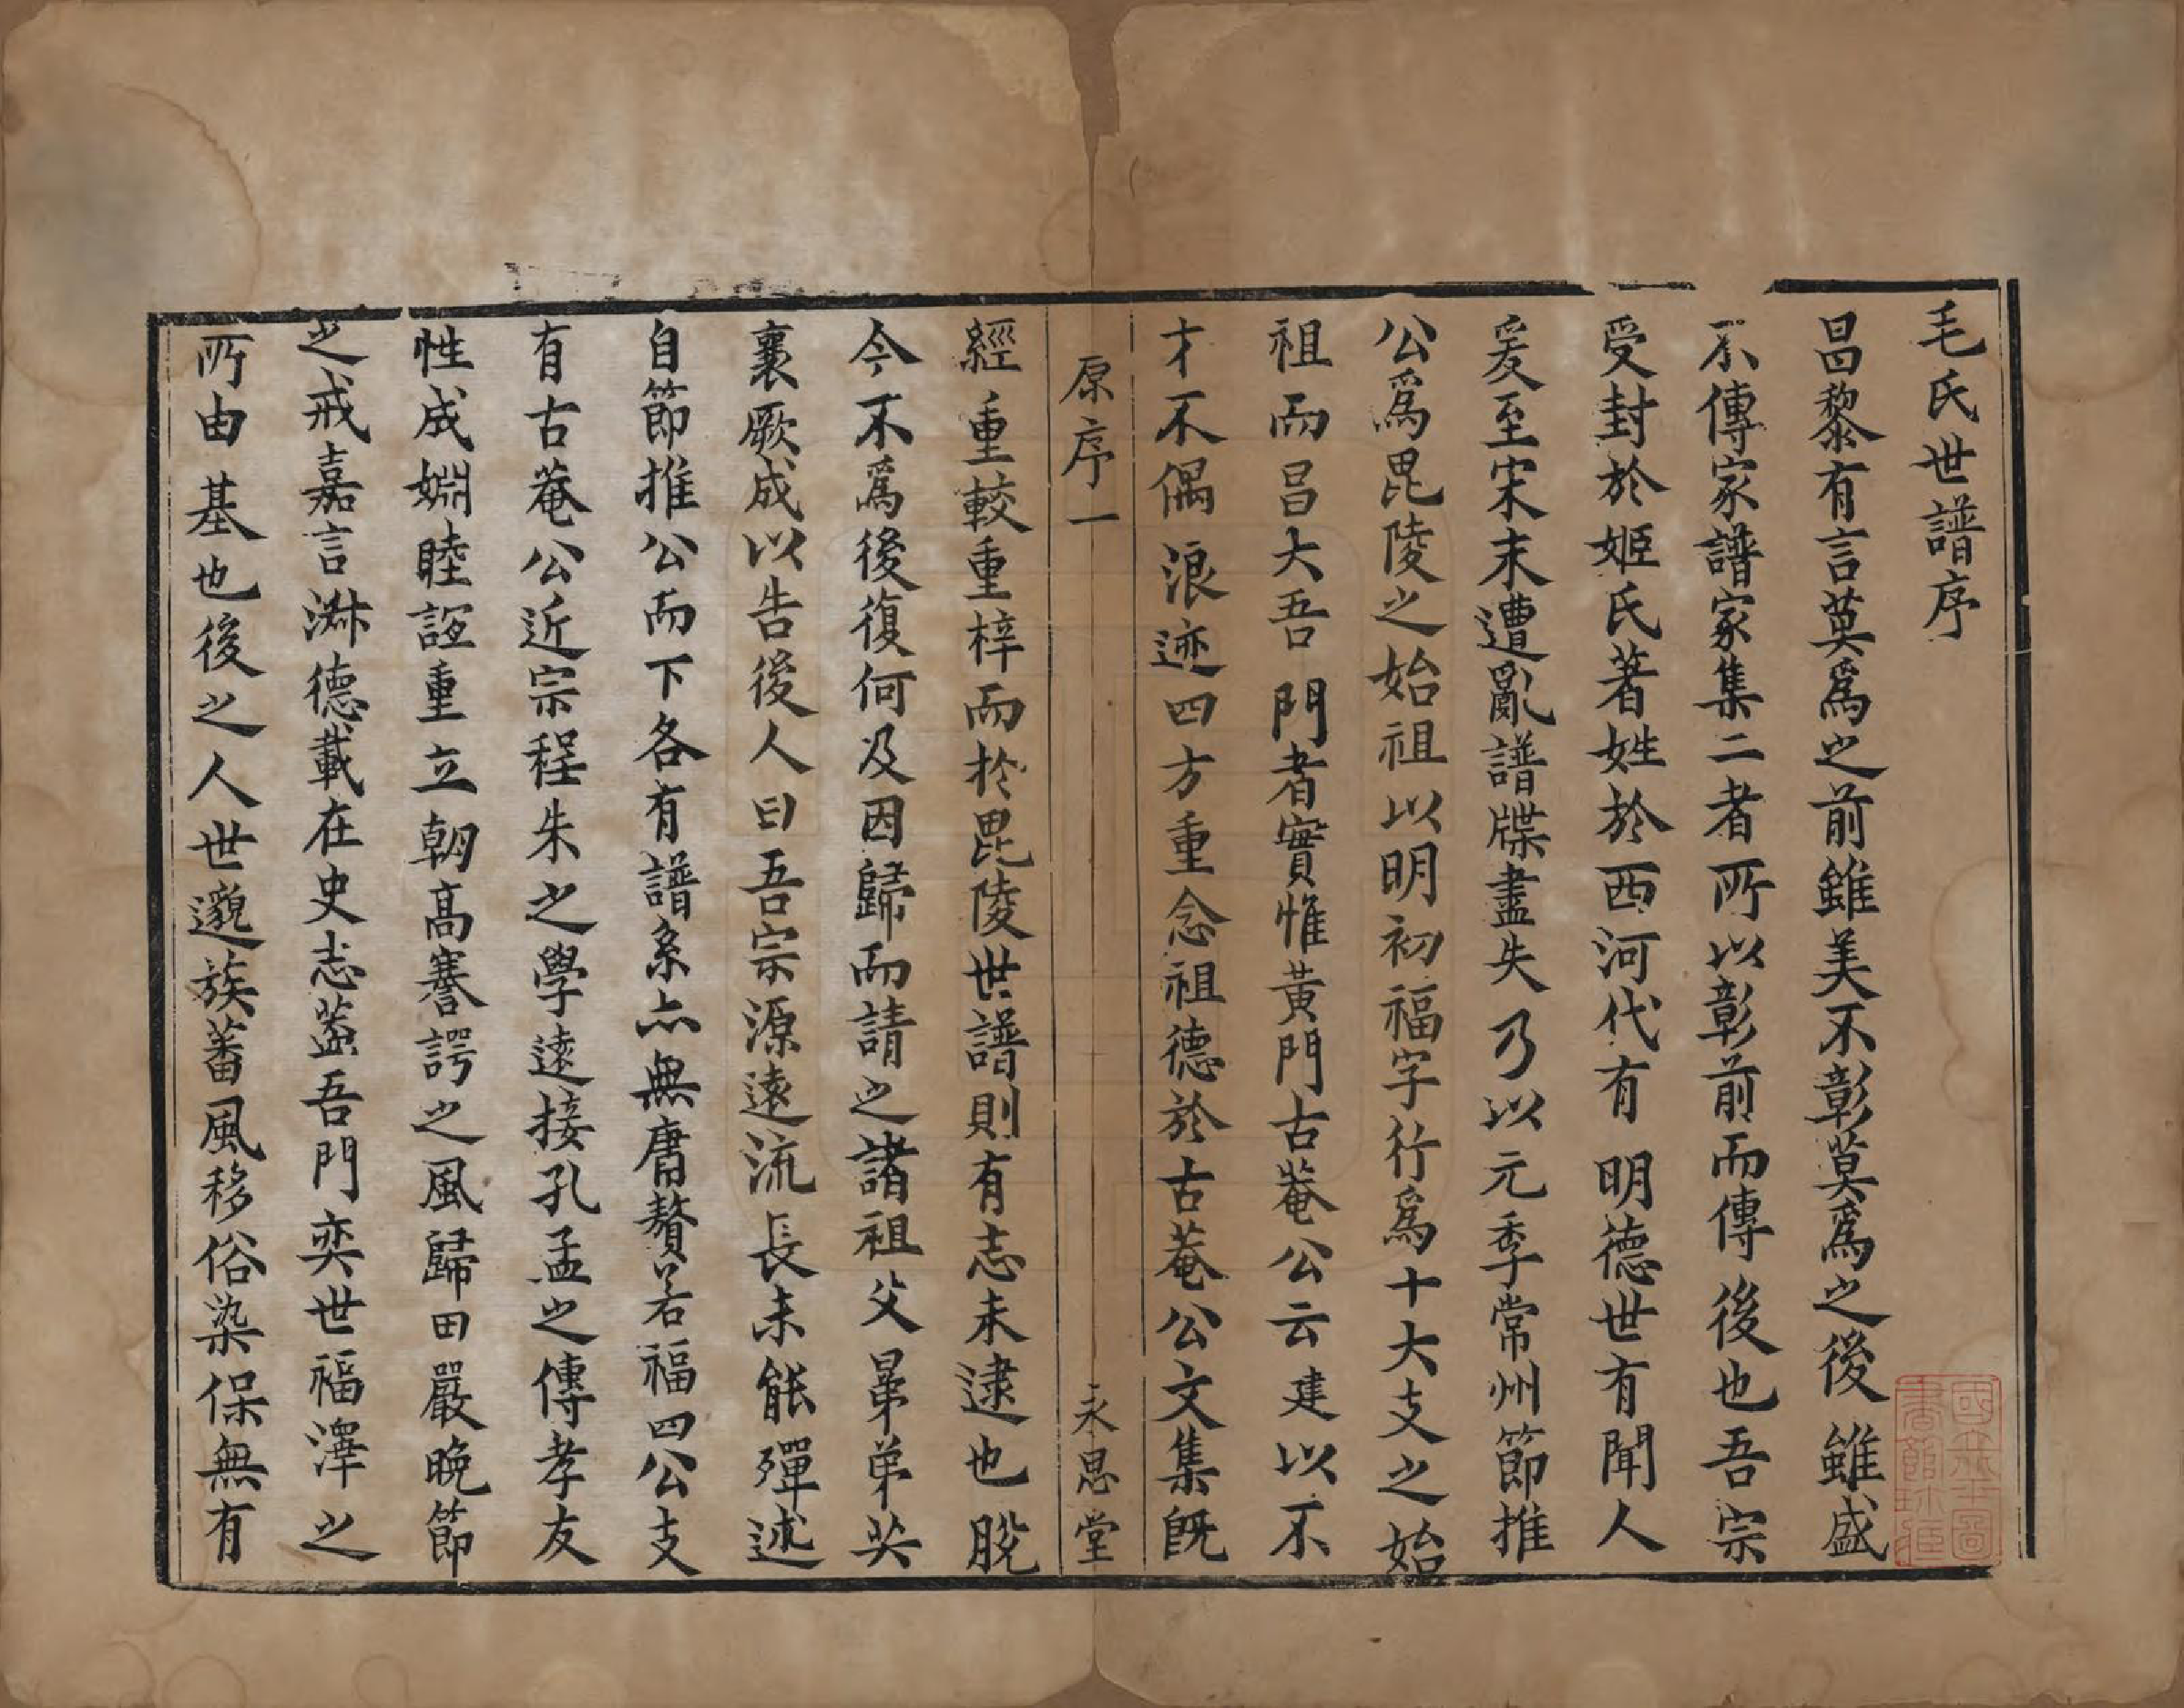 毛氏世譜序
昌黎有言莫爲之前雖美不彰莫爲之後雖盛
不傳家譜家集二者所以彰前而傳後也吾宗
受封於姬氏著姓於西河代有明德世有聞人
爰至宋末遭亂譜牒盡失乃以元季常州節推
公爲毘陵之始祖以明初福字行爲十大支之始
祖而昌大吾門者實惟黃門古菴公云建以不
才不偶浪迹四方重念祖德於古菴公文集旣
原序一
永思堂
經重較重梓而於毘陵世譜則有志未逮也脫
今不爲後復何及因歸而請之諸祖父㬅弟共
襄厥成以告後人曰吾宗源遠流長未能殫述
自節推公而下各有譜系亦無庸贅若福四公支
有古菴公近宗程朱之學遠接孔孟之傳孝友
性成婣睦誼重立朝高謇諤之風歸田嚴晚節
之戒嘉言淋德載在史志蓋吾門奕世福澤之
所由基也後之人世邈族蕃風移俗染保無有
國立北平圖
書館珍藏